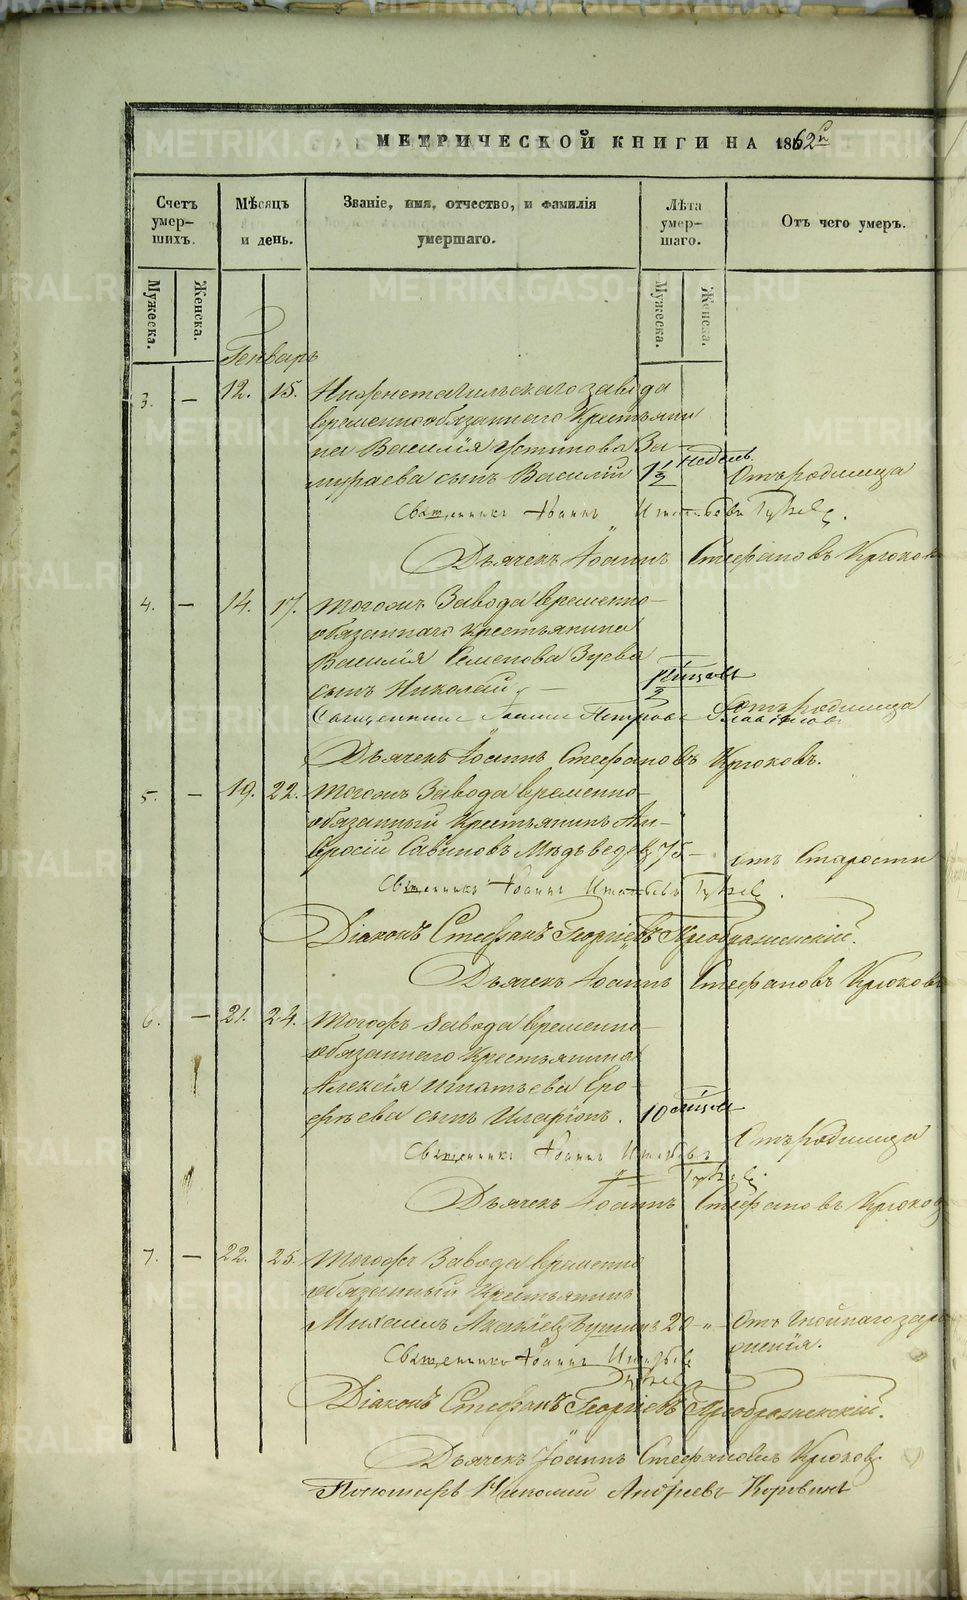 МЕТРИЧЕСКОЙ КНИГИ НА 1862й
Счетъ умерших.
Мѣсяцъ и день.
Званіе, имя, отчество, и фамилія умершаго.
Лѣта умершаго.
Отъ чего умеръ.
Мужеска.
Женска.
Мужеска.
Женска.
Генварь
3. — 12. 15. Нижнетагильскаго завода
временнообязаннаго Крестьяни
на Василія Устинова За
мураева сынъ Василій 1½ недель Отъ родимца
Священникъ Іоаннъ Игнатьевъ
Дьячекъ Іоаннъ Стефановъ Крюковъ
4. — 14. 17. Тогожъ Завода временно
обязаннаго Крестьянина
Василія Семенова Зуева
сынъ Николай — ½ мѣсяца Отъ родимца
Священникъ Іоаннъ Петровъ
Дьячекъ Іоаннъ Стефановъ Крюковъ.
5. — 19. 22. Тогожъ Завода временно
обязанный Крестьянинъ Ам
вросій Савиновъ Медведевъ 75 — отъ Старости
Священникъ Іоаннъ Игнатьевъ
Діаконъ Стефанъ Георгіевъ Преображенскій.
Дьячекъ Іоаннъ Стефановъ Крюковъ
6. — 21. 24. Тогожъ Завода временно
обязаннаго Крестьянина
Алексія Игнатьева Еро
фѣева сынъ Иларіонъ. 10 мѣсяц Отъ родимца
Священникъ Іоаннъ Игнатьевъ
Дьячекъ Іоаннъ Стефановъ Крюковъ
7. — 22. 25. Тогожъ Завода временно
обязанный Крестьянинъ
Михаилъ Акакіевъ 20 — Отъ гнойнаго зара
женія.
Священникъ Іоаннъ Игнатьевъ
Діаконъ Стефанъ Георгіевъ Преображенскій.
Дьячекъ Іоаннъ Стефановъ Крюковъ
Пономарь Николай Андреевъ Коровинъ
METRIKI.GASO-URAL.RU